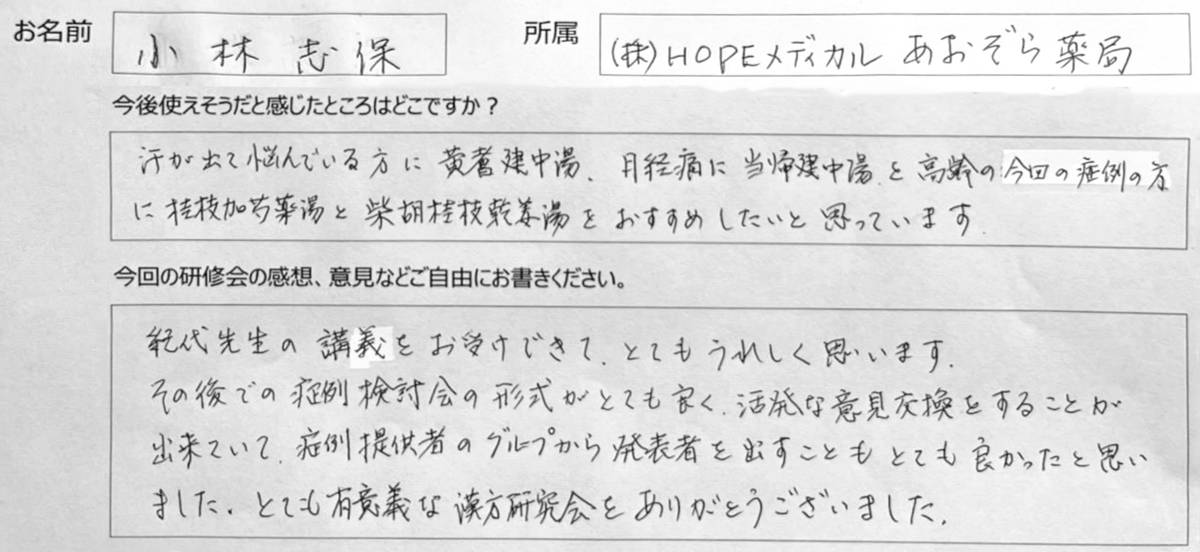 お名前 小林志保 所属 (株)HOPEメディカル あおぞら薬局
今後使えそうだと感じたところはどこですか？
汗が出て悩んでいる方に黄耆建中湯、月経痛に当帰建中湯と高齢の今回の症例の方
に桂枝加芍薬湯と柴胡桂枝乾姜湯をおすすめしたいと思っています
今回の研修会の感想、意見などご自由にお書きください。
紀代先生の講義をお受けできて、とてもうれしく思います。
その後での症例検討会の形式がとても良く、活発な意見交換をすることが
出来ていて、症例提供者のグループから発表者を出すこともとても良かったと思い
ました。とても有意義な漢方研究会をありがとうございました。